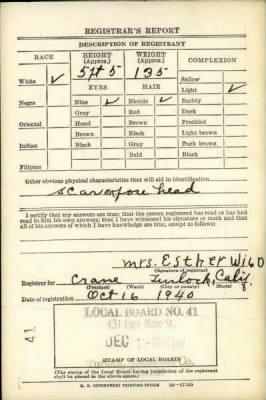 REGISTRAR'S REPORT
DESCRIPTION OF REGISTRANT
RACE HEIGHT (Approx.) WEIGHT (Approx.) COMPLEXION
5ft 5 135
White ✓ EYES HAIR Sallow
Light ✓
Negro Blue ✓ Blonde ✓ Ruddy
Gray Red Dark
Oriental Hazel Brown Freckled
Brown Black Light brown
Indian Black Gray Dark brown
Bald Black
Filipino
Other obvious physical characteristics that will aid in identification
scar on fore head
I certify that my answers are true; that the person registered has read or has had
read to him his own answers; that I have witnessed his signature or mark and that
all of his answers of which I have knowledge are true, except as follows:
Mrs. Esther
(Signature of registrar)
Registrar for Crane Turlock, Calif.
(Precinct) (Ward) (City or county) (State)
Date of registration Oct 16 1940
LOCAL BOARD NO. 41
431 East Main St.
DEC
41
(STAMP OF LOCAL BOARD)
(The stamp of the Local Board having jurisdiction of the registrant
shall be placed in the above space.)
U. S. GOVERNMENT PRINTING OFFICE 16-17105